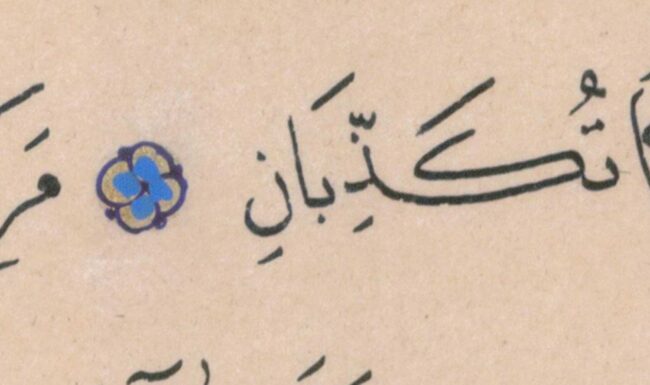 تُكَذِّبَانِ